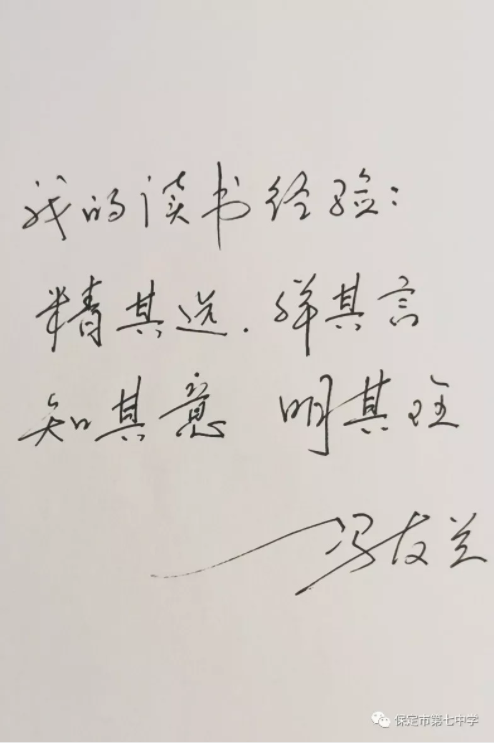 我的读书经验:
精其选.解其言
知其意 明其理
——冯友兰
保定市第七中学